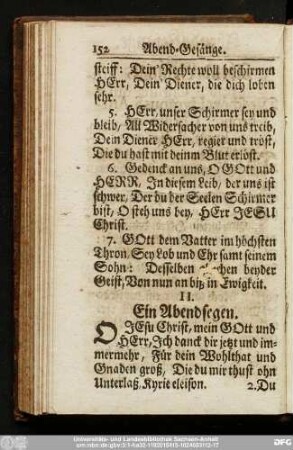 152 Abend-Gesänge.
steiff: Dein Rechte woll beschirmen
HErr, Dein Diener, die dich loben
sehr.
5. HErr, unser Schirmer sey und
bleib, All Widersacher von uns treib,
Dein Diener HErr, regier und tröst,
Die du hast mit deinm Blut erlöst.
6. Gedenck an uns, O GOtt und
HERR, In diesem Leib, der uns ist
schwer, Der du der Seelen Schirmer
bist, O steh uns bey, HErr JESU
Christ.
7. GOtt dem Vatter im höchsten
Thron, Sey Lob und Ehr samt seinem
Sohn: Desselben beyder
Geist, Von nun an biß in Ewigkeit.
II.
Ein Abendsegen.
O JEsu Christ, mein GOtt und
HErr, Ich danck dir jetzt und im-
mermehr, Für dein Wohlthat und
Gnaden groß, Die du mir thust ohn
Unterlaß, Kyrie eleison. 2. Du
Universitäts- und Landesbibliothek Sachsen-Anhalt